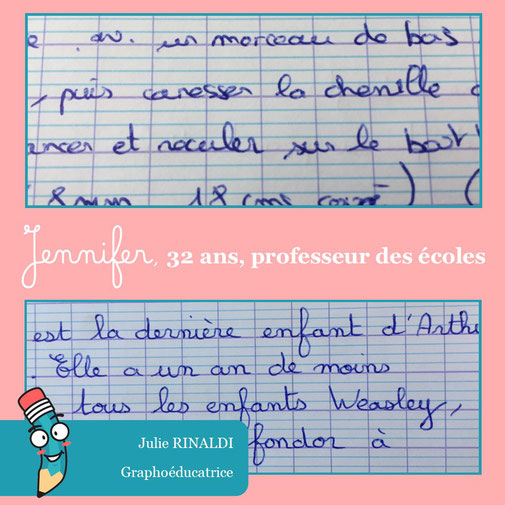 un morceau de bois
, puis caresser la chenille
ancer et reculer sur le bord
(8mm 18 cms
Jennifer, 32 ans, professeur des écoles
est la dernière enfant d'Arthu
. Elle a un an de moins
tous les enfants Weasley,
fondor à
Julie RINALDI
Graphoéducatrice